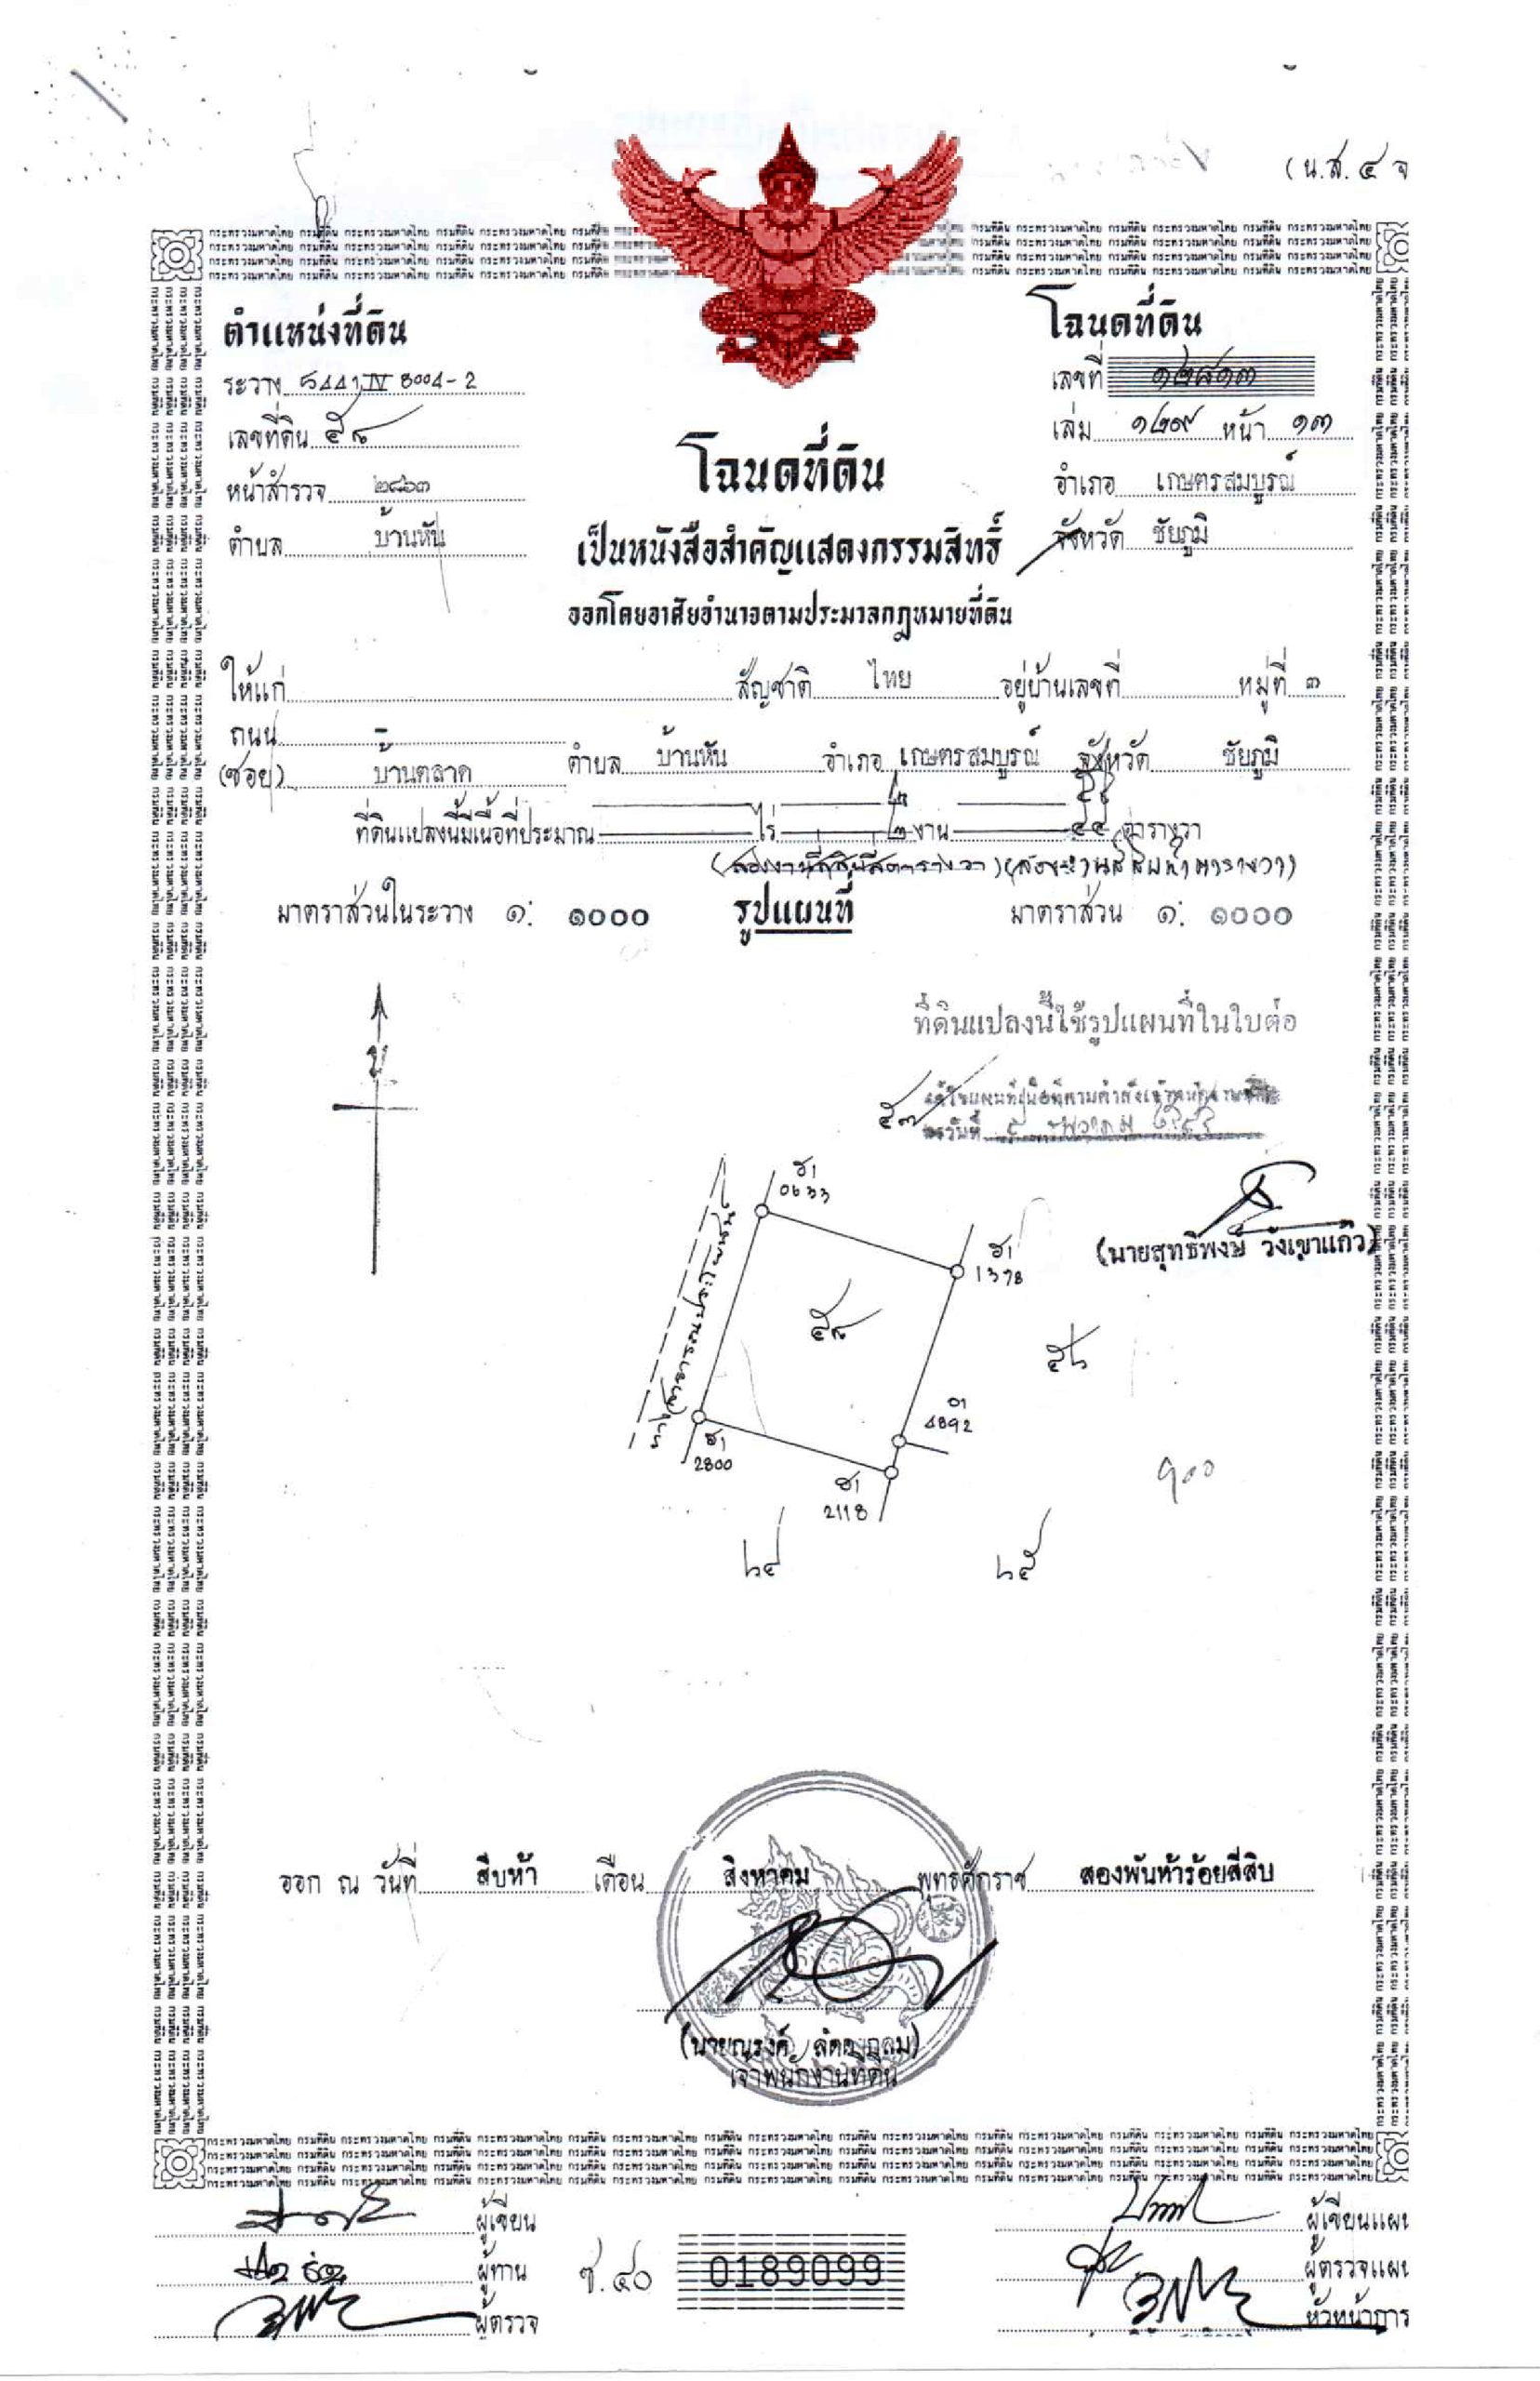 (น.ส. ๔ จ
ตำแหน่งที่ดิน
ระวาง 5441 IV 8004-2
เลขที่ดิน ๕๘
หน้าสำรวจ ๒๘๖๓
ตำบล บ้านหัน
โฉนดที่ดิน
เลขที่ ๑๒๘๑๓
เล่ม ๑๒๙ หน้า ๑๓
อำเภอ เกษตรสมบูรณ์
จังหวัด ชัยภูมิ
โฉนดที่ดิน
เป็นหนังสือสำคัญแสดงกรรมสิทธิ์
ออกโดยอาศัยอำนาจตามประมวลกฎหมายที่ดิน
ให้แก่ สัญชาติ ไทย อยู่บ้านเลขที่ หมู่ที่ ๓
ถนน -
(ซอย) บ้านตลาด ตำบล บ้านหัน อำเภอ เกษตรสมบูรณ์ จังหวัด ชัยภูมิ
ที่ดินแปลงนี้มีเนื้อที่ประมาณ ไร่ ๒ งาน ๔๔ ตารางวา
(สองงานสี่สิบสี่ตารางวา) (สองงานสี่สิบห้าตารางวา)
มาตราส่วนในระวาง ๑: ๑๐๐๐ รูปแผนที่ มาตราส่วน ๑: ๑๐๐๐
ที่ดินแปลงนี้ใช้รูปแผนที่ในใบต่อ
น
๕๗
(นายสุทธิพงษ์ วังเขาแก้ว)
0633
1378
๕๘
๕๖
4892
2800
2118
๖๔
๖๕
๑๐๐
ออก ณ วันที่ สิบห้า เดือน สิงหาคม พุทธศักราช สองพันห้าร้อยสี่สิบ
เจ้าพนักงานที่ดิน
ผู้เขียน
ผู้ทาน
ผู้ตรวจ
ช.๔๐
0189099
ผู้เขียนแผน
ผู้ตรวจแผน
หัวหน้าการ